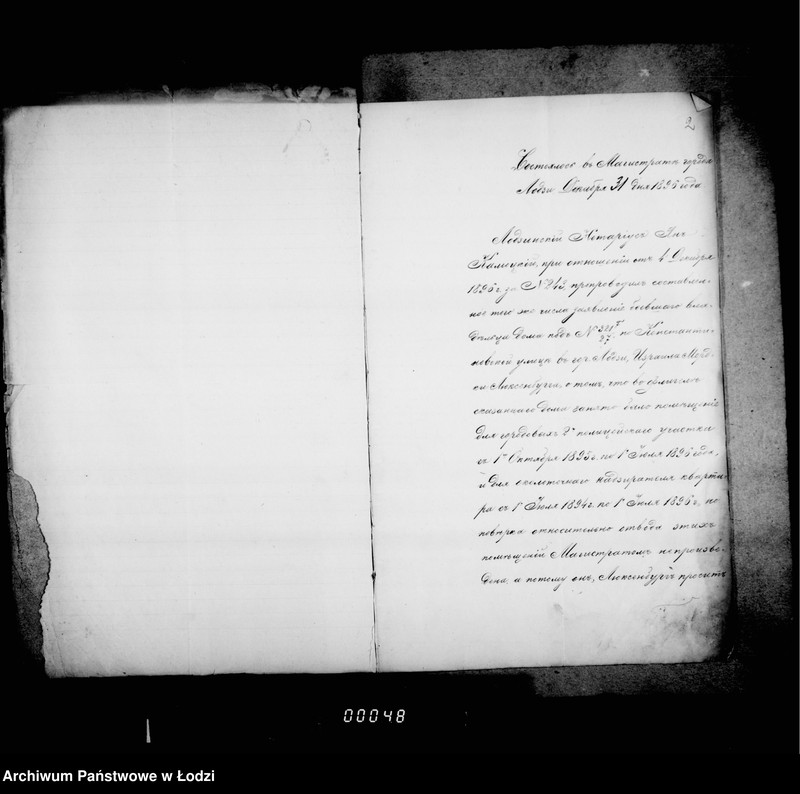 2
Состоялось въ Магистратѣ города
Лодзи Декабря 31 дня 1896 года
Лодзинскій Нотаріусъ Янъ
Калицкій, при отношеніи отъ 4 Декабря
1896 г. за № 242, препроводилъ составлен-
ное того же числа заявленіе бывшаго вла-
дѣльца дома подъ № 321/27 по Константи-
новской улицѣ въ гор. Лодзи, Израиля Морд-
си Люксенбурга, о томъ, что во флигелѣ
сказаннаго дома занято было помѣщеніе
для городовыхъ 2го полицейскаго участка
съ 1го Октября 1895 г. по 1 Іюля 1896 года,
и для околоточнаго надзирателя кварти-
ра съ 1 Іюля 1894 г. по 1 Іюля 1896 г., но
повѣрка относительно отвода этихъ
помѣщеній Магистратомъ не произве-
дена, а потому онъ, Люксенбургъ проситъ
00048
Archiwum Państwowe w Łodzi